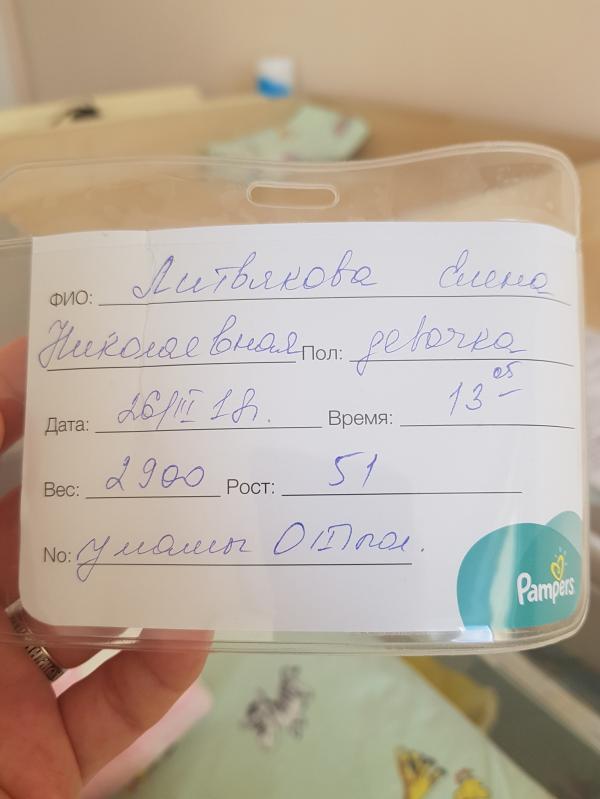 ФИО: Литвякова Елена
Николаевная Пол: девочка
Дата: 26/III 18г. Время: 13 05
Вес: 2900 Рост: 51
No: у мамы O(II) пол.
Pampers